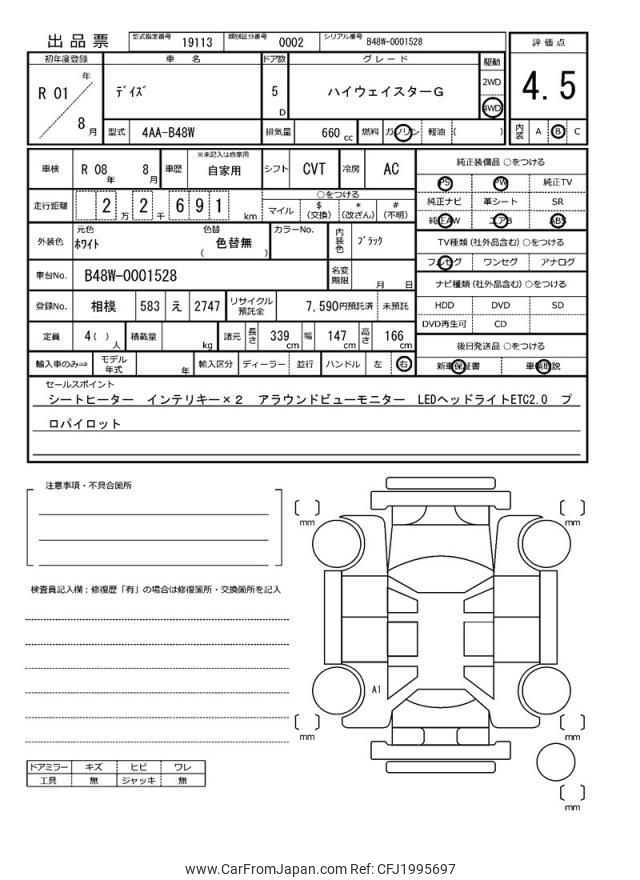 出品票 型式指定番号 19113 類別区分番号 0002 シリアル番号 B48W-0001528
評価点
4.5
内装 A B C
初年度登録 車名 ドア数 グレード 駆動
R 01 年 8 月
デイズ 5 D ハイウェイスターG 2WD 4WD
型式 4AA-B48W 排気量 660 cc 燃料 ガソリン 軽油 ( )
車検 R 08 年 8 月 車歴 ※未記入は自家用 自家用 シフト CVT 冷房 AC
走行距離 2 2 万 6 9 1 千 km
○をつける
マイル $ (交換) * (改ざん) # (不明)
外装色 元色 ホワイト 色替 色替無 ( ) カラーNo. 内装色 ブラック
車台No. B48W-0001528 名変期限 月 日
登録No. 相模 583 え 2747 リサイクル預託金 7,590円預託済 未預託
定員 4( ) 人 積載量 kg 諸元 長さ 339 cm 幅 147 cm 高さ 166 cm
輸入車のみ⇒ モデル年式 年 輸入区分 ディーラー 並行 ハンドル 左 右
純正装備品 ○をつける
PS PW 純正TV
純正ナビ 革シート SR
純正AW エアB ABS
TV種類(社外品含む)○をつける
フルセグ ワンセグ アナログ
ナビ種類(社外品含む)○をつける
HDD DVD SD
DVD再生可 CD
後日発送品 ○をつける
新車保証書 車輌取説
セールスポイント
シートヒーター インテリキー×2 アラウンドビューモニター LEDヘッドライトETC2.0 プ
ロパイロット
注意事項・不具合箇所
検査員記入欄：修復歴「有」の場合は修復箇所・交換箇所を記入
ドアミラー キズ ヒビ ワレ
工具 無 ジャッキ 無
[ ] mm
[ ] mm
A1
[ ] mm
[ ] mm
[ ] mm
www.CarFromJapan.com Ref: CFJ1995697